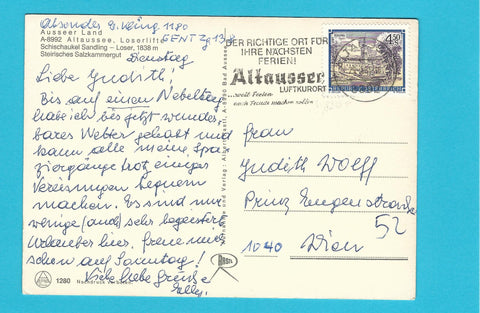 Absender G. König, 1180
Ausseer Land GENTZg 13
A-8992 Altaussee, Loserlift
Schischaukel Sandling – Loser, 1838 m
Steirisches Salzkammergut
Dienstag
Liebe Judith!
Bis auf einen Nebeltag
habe ich bis jetzt wunder
bares Wetter gehabt und
kann alle meine Spa
ziergänge trotz einiger
Vereisungen bequem
machen. Es sind nur
wenige (and) sehr begeisterte
Urlauber hier, freue mich
schon auf Sonntag!
Viele liebe Grüße
1280
DER RICHTIGE ORT FÜR
IHRE NÄCHSTEN
FERIEN!
Altaussee
LUFTKURORT
...weil Ferien
auch Freude machen sollen
4.50
REPUBLIK ÖSTERREICH
Frau
Judith Wolff
Prinz Eugenstraße
52
1040 Wien